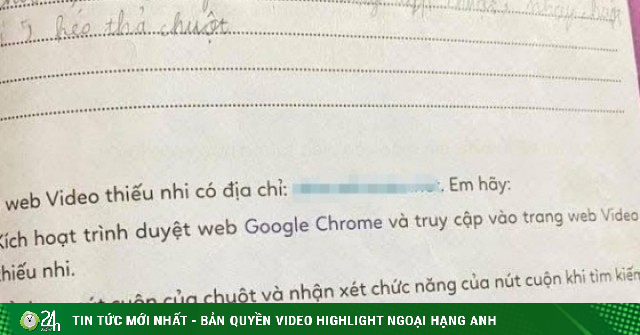 5 kéo thả chuột
web Video thiếu nhi có địa chỉ: . Em hãy:
Kích hoạt trình duyệt web Google Chrome và truy cập vào trang web Video
thiếu nhi.
cuộn của chuột và nhận xét chức năng của nút cuộn khi tìm kiếm
24h TIN TỨC MỚI NHẤT - BẢN QUYỀN VIDEO HIGHLIGHT NGOẠI HẠNG ANH